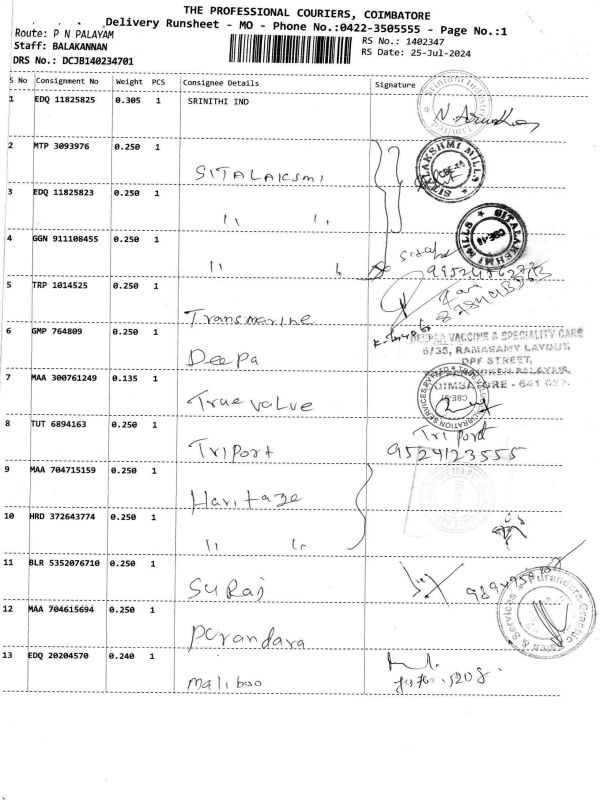 THE PROFESSIONAL COURIERS, COIMBATORE
Delivery Runsheet - MO - Phone No.:0422-3505555 - Page No.:1
Route: P N PALAYAM
Staff: BALAKANNAN
DRS No.: DCJB140234701
RS No.: 1402347
RS Date: 25-Jul-2024
S No Consignment No Weight PCS Consignee Details Signature
1 EDQ 11825825 0.305 1 SRINITHI IND
2 MTP 3093976 0.250 1 SITALAKSMI
SITALAKSHMI MILLS
CBE-18
3 EDQ 11825823 0.250 1 " "
4 GGN 911108455 0.250 1 " "
SITALAKSHMI MILLS
CBE-18
5 TRP 1014525 0.250 1 Transmarine
6 GMP 764809 0.250 1 Deepa
VACCINE & SPECIALITY CARE
6/35, RAMASAMY LAYOUT,
DPF STREET,
7 MAA 300761249 0.135 1 True value
8 TUT 6894163 0.250 1 TriPort
Tri Port
9524123555
9 MAA 704715159 0.250 1 Haritage
10 HRD 372643774 0.250 1 " "
11 BLR 5352076710 0.250 1 SURAJ
12 MAA 704615694 0.250 1 Purandara
13 EDQ 20204570 0.240 1 maliboo